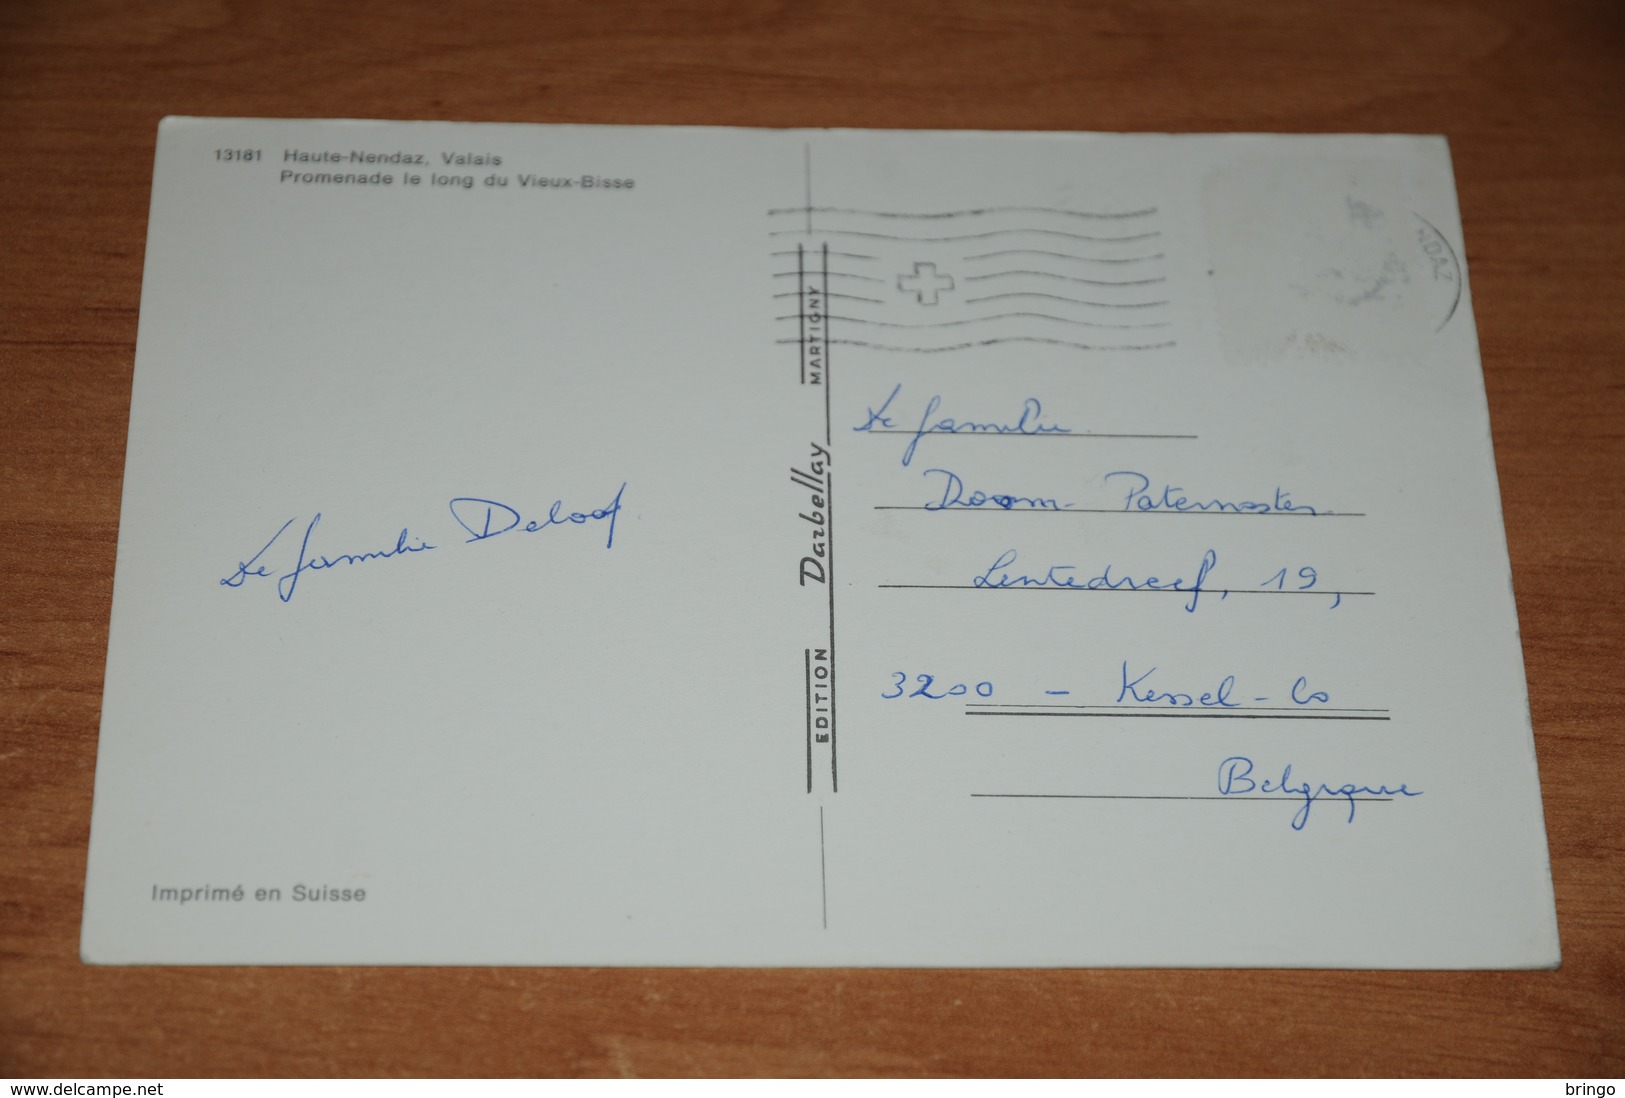 13181 Haute-Nendaz, Valais
Promenade le long du Vieux-Bisse
De familie Deloof
Imprimé en Suisse
EDITION Darbellay MARTIGNY
NDAZ
De familie
Doom - Paternoster
Lentedreef, 19,
3200 - Kessel-Lo
Belgique
www.delcampe.net
bringo